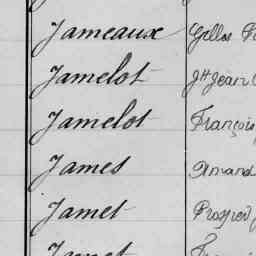 Jameaux Gilles
Jamelot Jh Jean
Jamelot François
James Amand
Jamet Prosper
Jamet